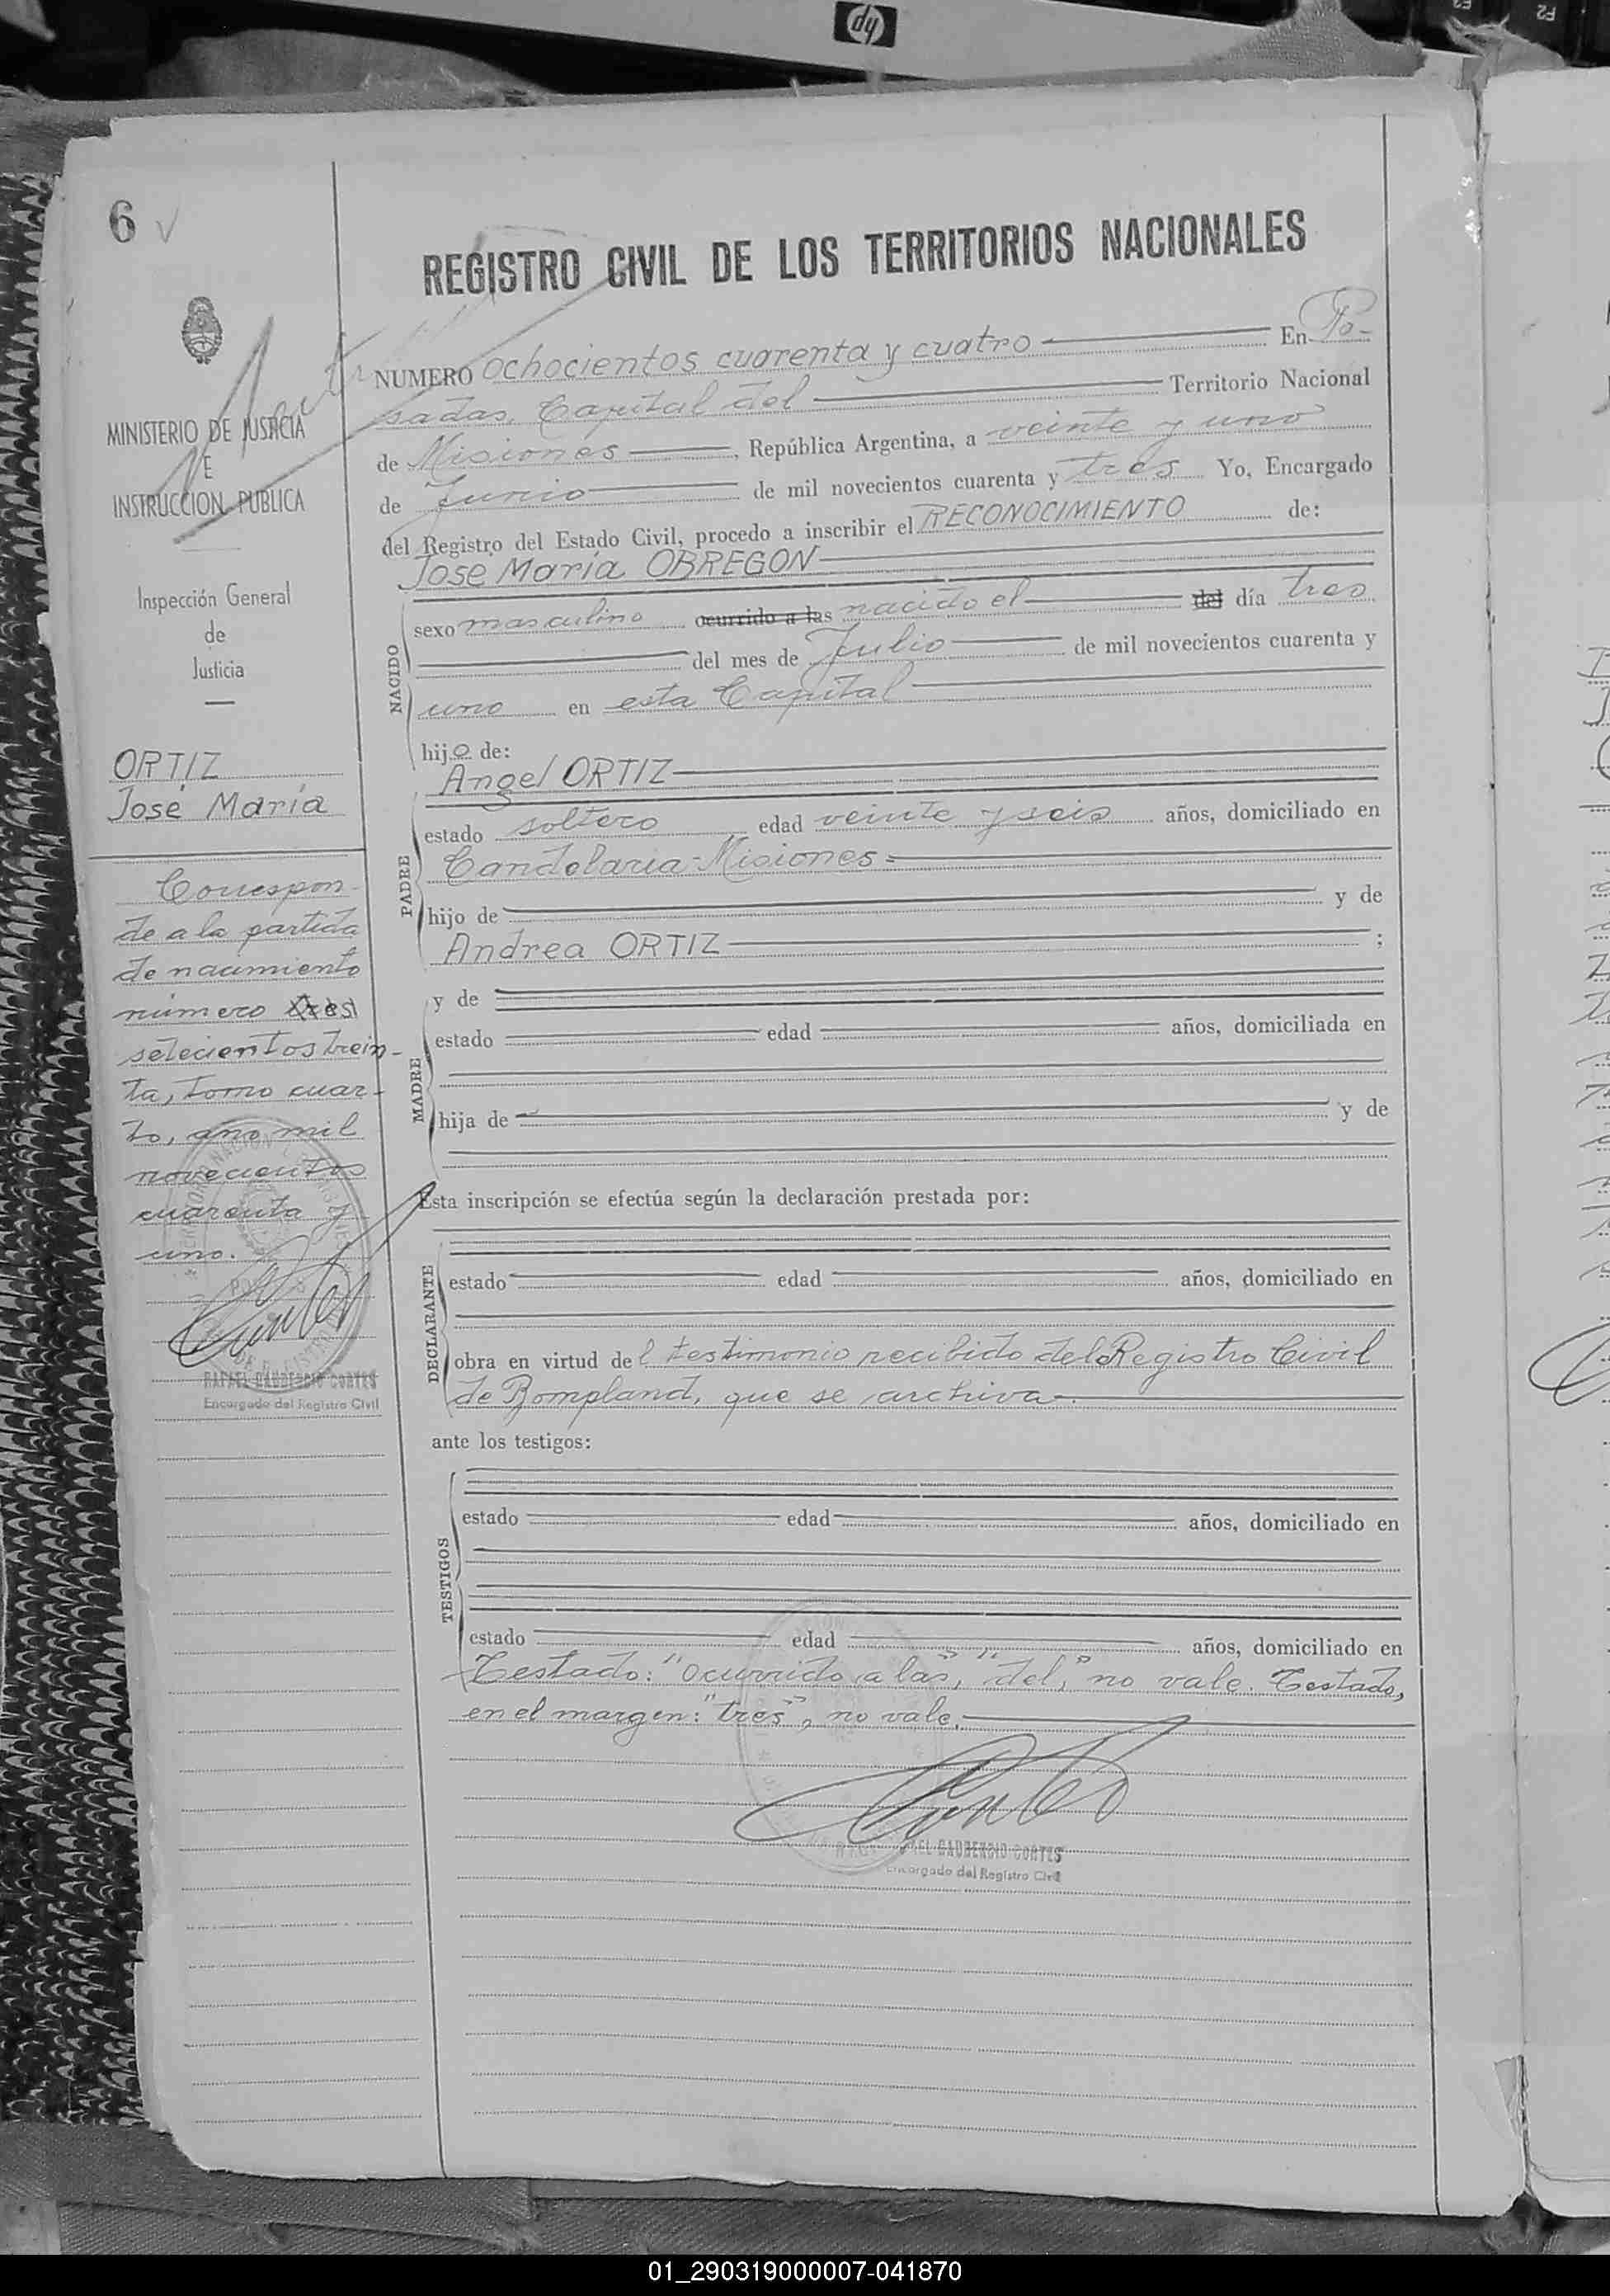 hp
F2
6
REGISTRO CIVIL DE LOS TERRITORIOS NACIONALES
MINISTERIO DE JUSTICIA
E
INSTRUCCION PUBLICA
Inspección General
de
Justicia
ORTIZ
José María
Correspon-
de a la partida
de nacimiento
número tres
setecientos trein-
ta, tomo cuar-
to, año mil
novecientos
cuarenta y
uno.
RAFAEL GAUDENCIO CORTES
Encargado del Registro Civil
NUMERO ochocientos cuarenta y cuatro En Po-
sadas, Capital del Territorio Nacional
de Misiones, República Argentina, a veinte y uno
de Junio de mil novecientos cuarenta y tres Yo, Encargado
del Registro del Estado Civil, procedo a inscribir el RECONOCIMIENTO de:
José María OBREGON
NACIDO
sexo masculino ocurrido a las nacido el del día tres
del mes de Julio de mil novecientos cuarenta y
uno en esta Capital
hijo de:
Angel ORTIZ
PADRE
estado soltero edad veinte y seis años, domiciliado en
Candelaria-Misiones=
hijo de y de
Andrea ORTIZ ;
MADRE
y de
estado edad años, domiciliada en
hija de y de
Esta inscripción se efectúa según la declaración prestada por:
DECLARANTE
estado edad años, domiciliado en
obra en virtud del testimonio recibido del Registro Civil
de Bompland, que se archiva.
ante los testigos:
TESTIGOS
estado edad años, domiciliado en
estado edad años, domiciliado en
Testado: "ocurrido a las", "del", no vale. Testado,
en el margen: "tres", no vale.
GAUDENCIO CORTES
Encargado del Registro Civil
01_290319000007-041870